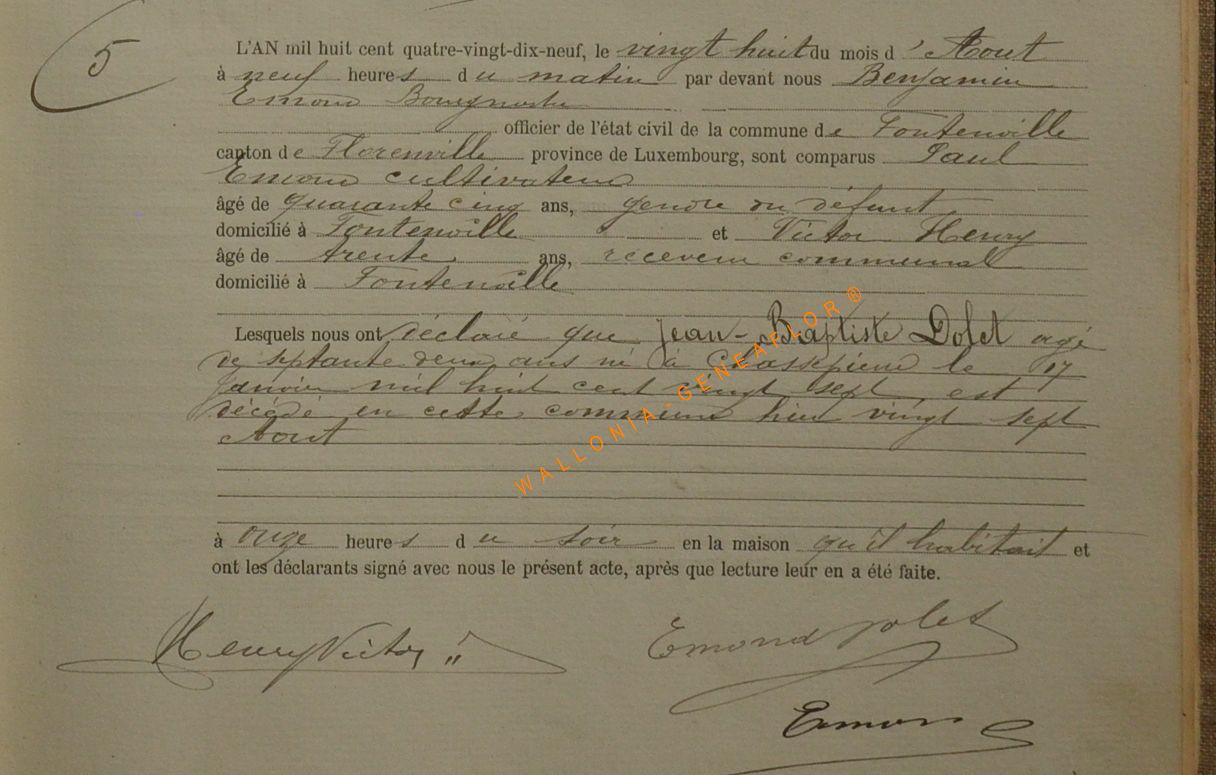 5
L'AN mil huit cent quatre-vingt-dix-neuf, le vingt huit du mois d'Aout
à neuf heures du matin par devant nous Benjamin
Emond Bourgmestre
officier de l'état civil de la commune de Fontenoille
canton de Florenville province de Luxembourg, sont comparus Paul
Emond cultivateur
âgé de quarante cinq ans, gendre du défunt
domicilié à Fontenoille et Victor Henry
âgé de trente ans, receveur communal
domicilié à Fontenoille
Lesquels nous ont déclaré que Jean-Baptiste Dolet agé
de septante deux ans né à Chassepierre le 17
Janvier mil huit cent vingt sept, est
décédé en cette commune hier vingt sept
Aout
à onze heures du soir en la maison qu'il habitait et
ont les déclarants signé avec nous le présent acte, après que lecture leur en a été faite.
Henry Victor Emond Dolet
Emond
WALLONIA-GENEAFLOR®